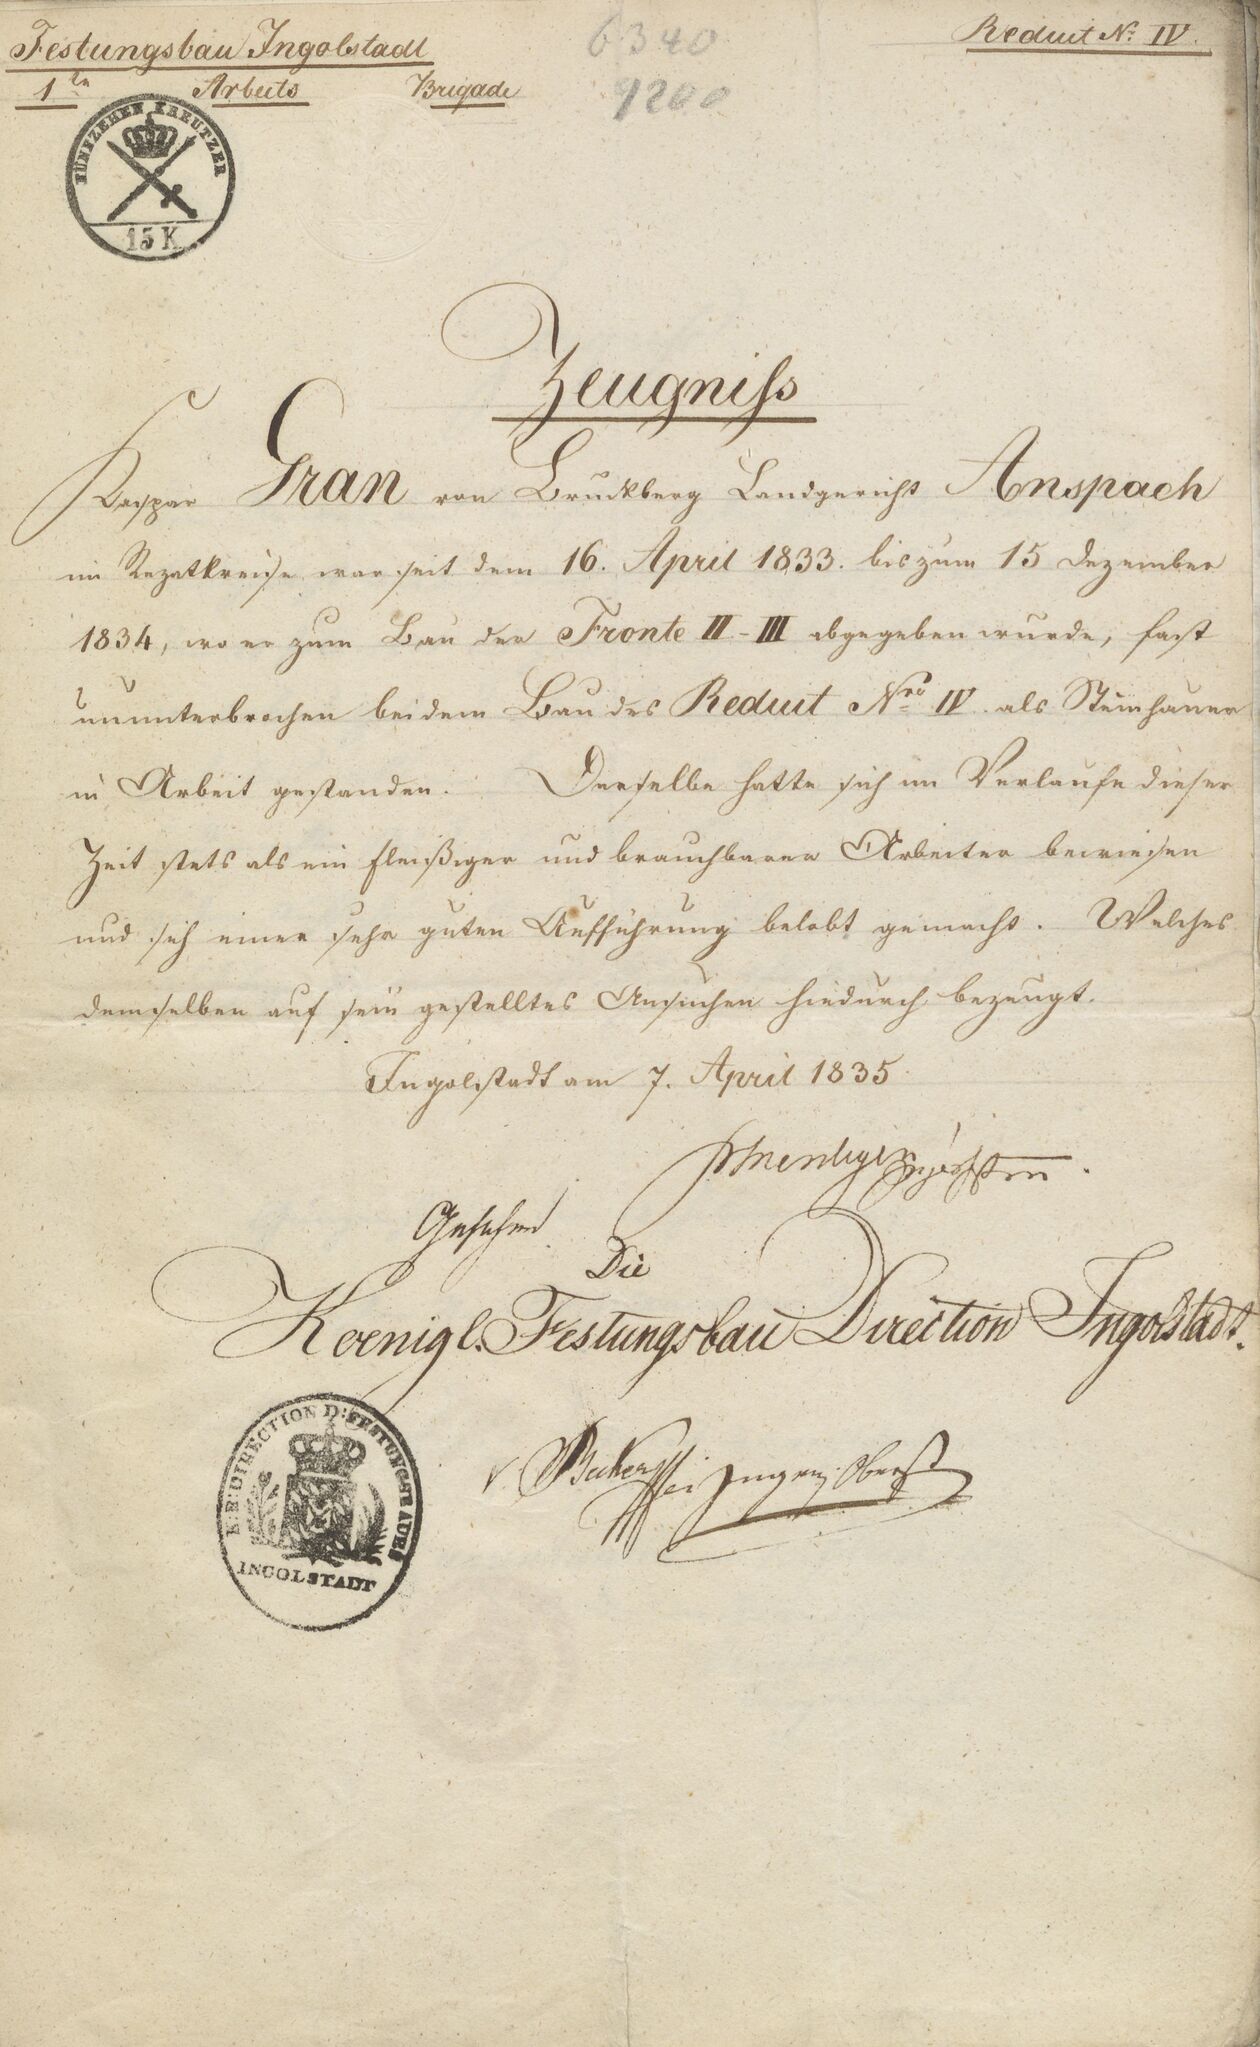 Festungsbau Ingolstadt
Reduit No. IV.
6340
9200
1te Arbeits Brigade
FÜNFZEHEN KREUTZER
15 K
Zeugniss
Kaspar Gran von Bruckberg Landgerichts Anspach
im Rezatkreise war seit dem 16. April 1833. bis zum 15 Dezember
1834, wo er zum Bau der Fronte II-III abgegeben wurde, fast
ununterbrochen bei dem Bau des Reduit Nro IV. als Steinhauer
in Arbeit gestanden. Derselbe hatte sich im Verlaufe dieser
Zeit stets als ein fleißiger und brauchbarer Arbeiter bewiesen
und sich einer sehr guten Aufführung belobt gemacht. Welches
demselben auf sein gestelltes Ansuchen hiedurch bezeugt.
Ingolstadt am 7. April 1835
Gesehen
Die
Koenigl. Festungsbau Direction Ingolstadt.
K: B: DIRECTION D: FESTUNGSBAUES
INGOLSTADT
v. Becker Ingen: Oberst